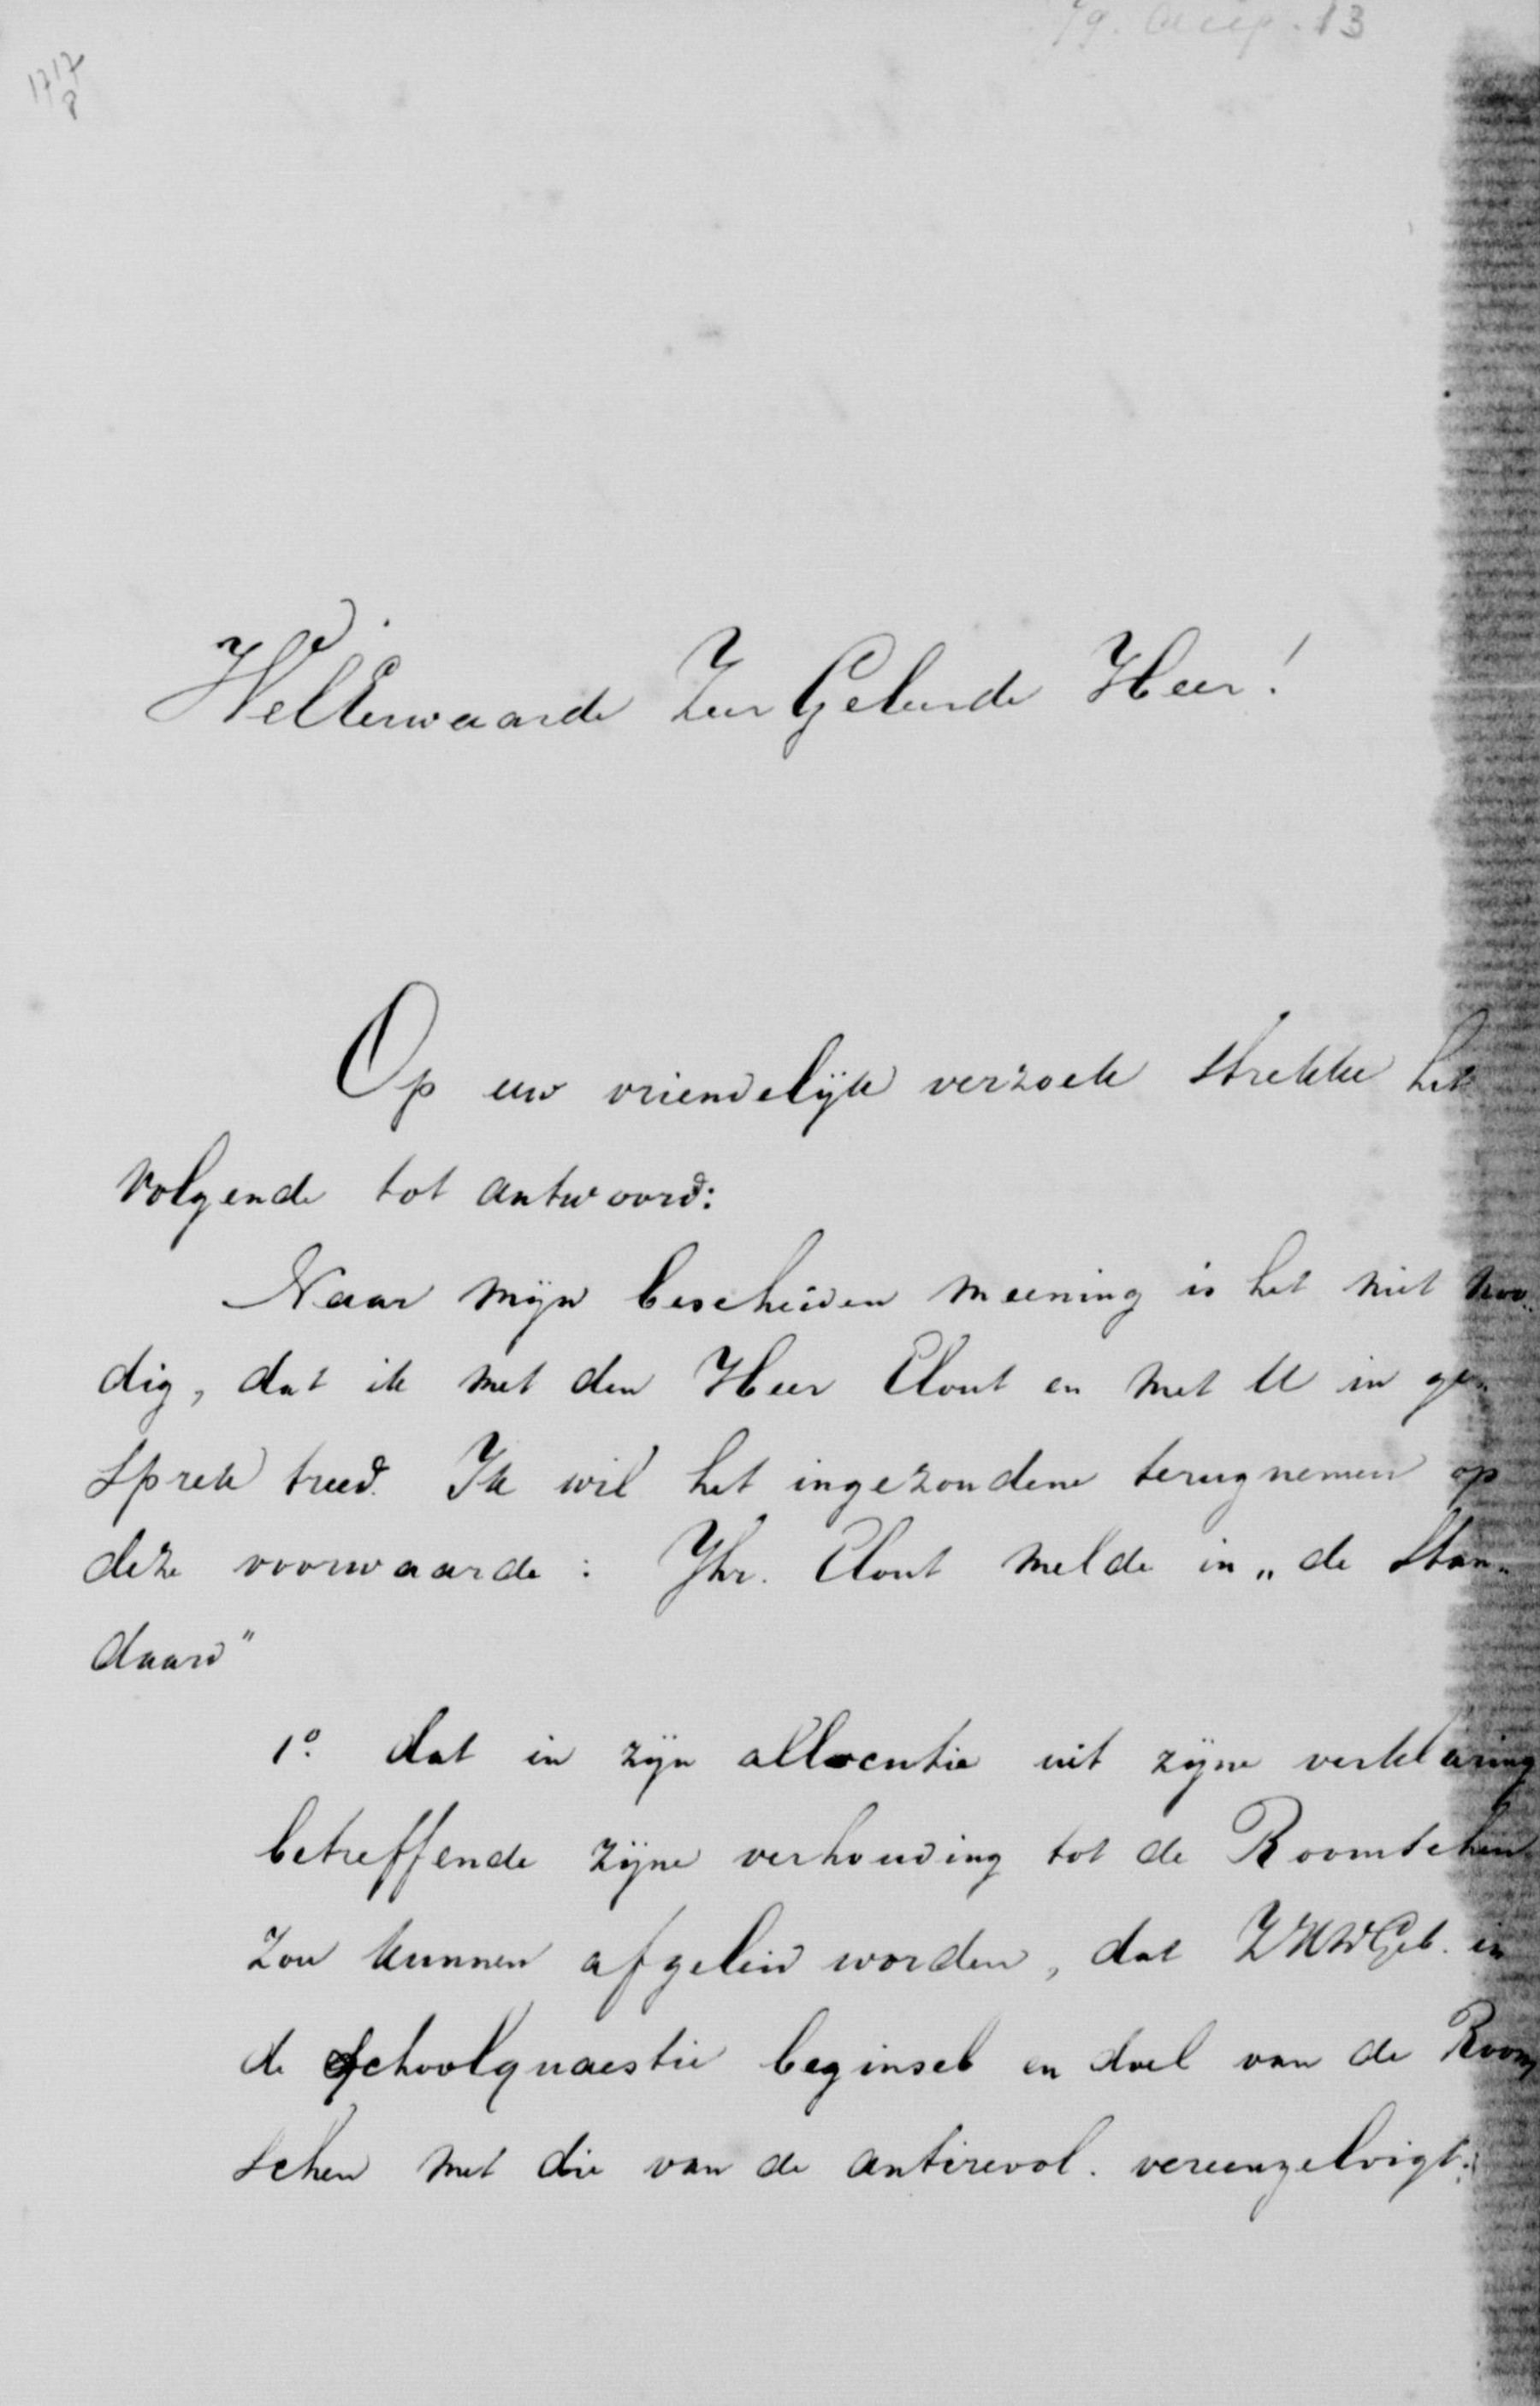 1717
8
WelEerwaarde ZeerGeleerde Heer!
Op uw vriendelijk verzoek strekke het
volgende tot antwoord:
Naar mijn bescheiden meening is het niet noo-
dig, dat ik met den Heer Elout en met U in ge-
sprek treed. Ik wil het ingezondene terugnemen op
deze voorwaarde: Jhr. Elout melde in „de Stan-
daard"
1º. dat in zijn allocutie uit zijne verklaring
betreffende zijne verhouding tot de Roomschen
zou kunnen afgeleid worden, dat ZHWGeb. in
de schoolquaestie beginsel en doel van de Room
schen met die van de antirevol. vereenzelvigt.